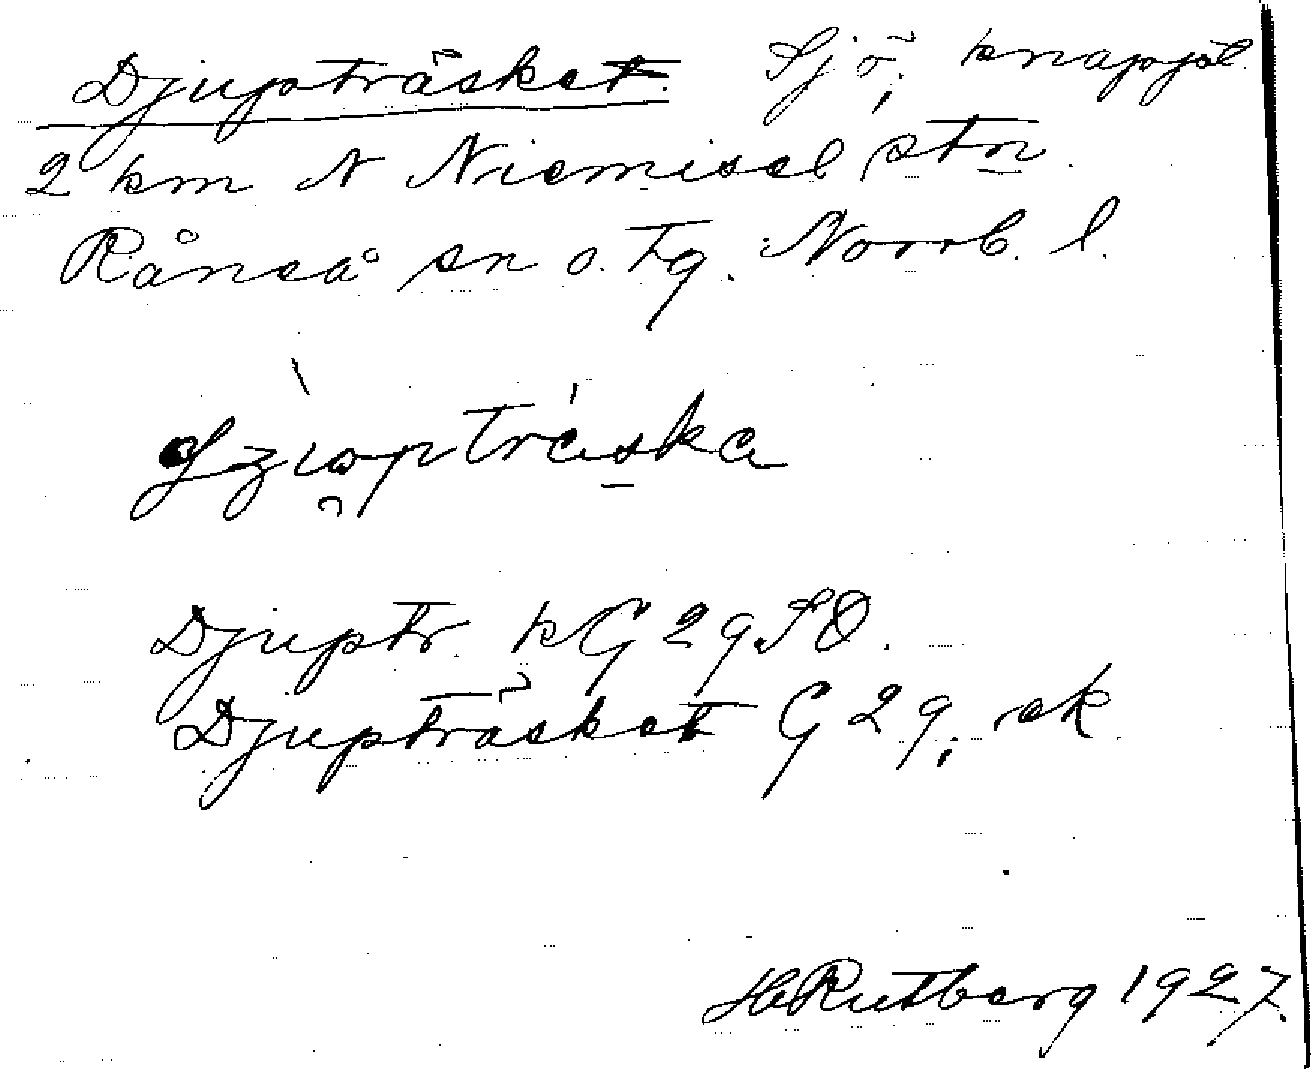 Djupträsket. Sjö, knappt
2 km N Niemisel stn.
Råneå sn o. tg. Norrb. l.
Djuptr. kG 29 SO.
Djupträsket G 29, ek
H Rutberg 1927.